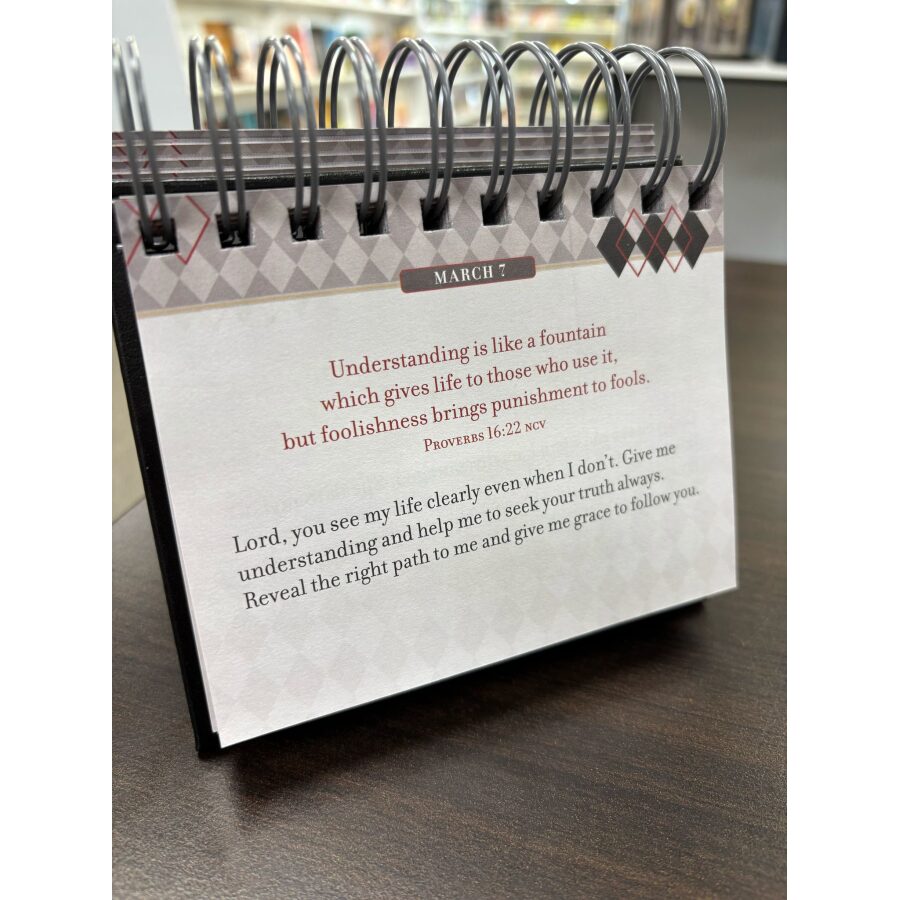 MARCH 7
Understanding is like a fountain
which gives life to those who use it,
but foolishness brings punishment to fools.
PROVERBS 16:22 NCV
Lord, you see my life clearly even when I don't. Give me
understanding and help me to seek your truth always.
Reveal the right path to me and give me grace to follow you.